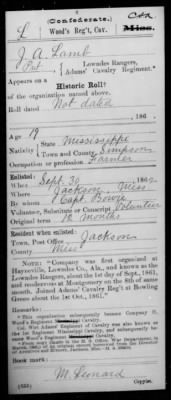 (Confederate.)
L Wood's Reg't, Cav. Miss.
J A Lamb
Pvt, Lowndes Rangers,
Adams' Cavalry Regiment.*
Appears on a
Historic Roll†
of the organization named above.
Roll dated Not dated
, 186 .
Age 19
Nativity State Mississippi
Town and County Simpson
Occupation or profession Farmer
Enlisted:
When Sept. 30, 186
Where Jackson, Miss
By whom Capt. Bowie
Volunteer, Substitute or Conscript Volunteer
Original term 12 months
Resident when enlisted:
Town, Post Office Jackson
County Miss
NOTE: "Company was first organized at
Hayneville, Lowndes Co., Ala., and known as the
Lowndes Rangers, about the 1st day of Sept., 1861,
and rendezvous at Montgomery on the 8th of same
month. Joined Adams' Cavalry Reg't at Bowling
Green about the 1st Oct., 1861."
Remarks:
*This organization subsequently became Company
Wood's Regiment Cavalry.
Wirt Adams' Regiment of Cavalry was also known as
1st Regiment Mississippi Cavalry, and subsequently became
Wood's Regiment Cavalry.
M. Leonard
Copyist.